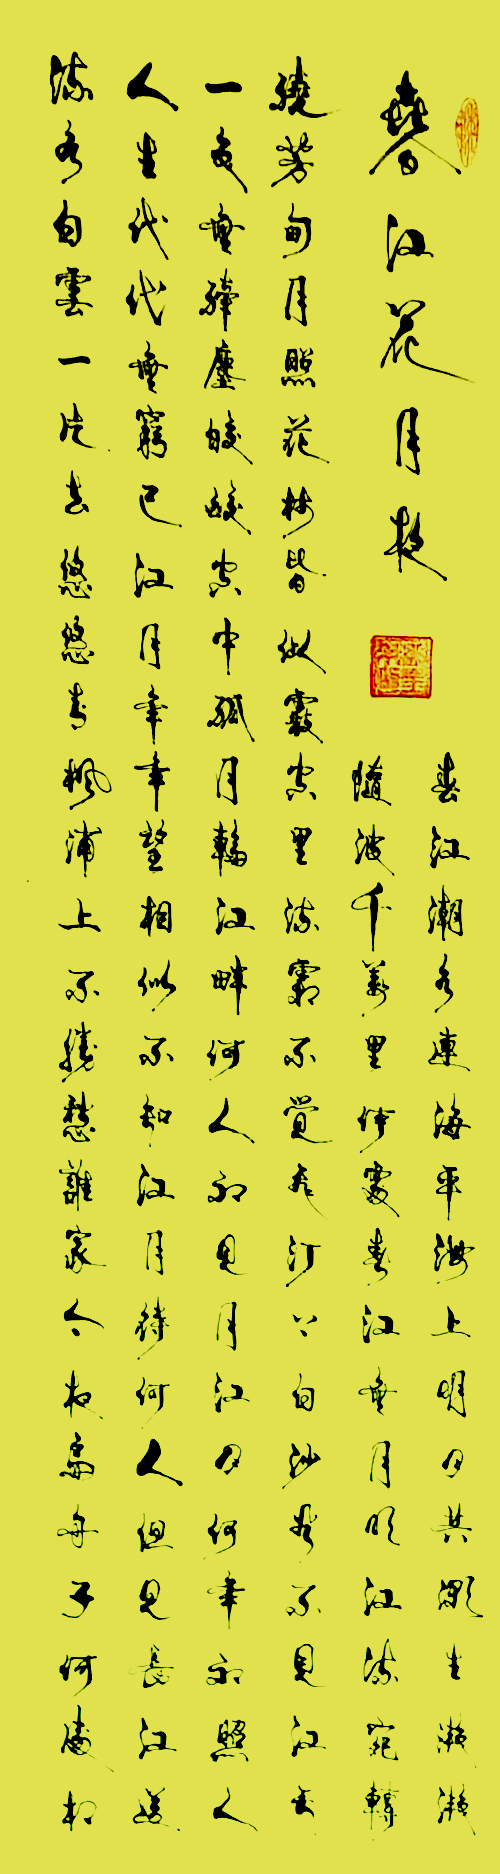 春江花月夜
春江潮水連海平海上明月共潮生灩灩
隨波千萬里何處春江無月明江流宛轉
繞芳甸月照花林皆似霰空里流霜不覺飛汀上白沙看不見江天
一色無纖塵皎皎空中孤月輪江畔何人初見月江月何年初照人
人生代代無窮已江月年年望相似不知江月待何人但見長江送
流水白雲一片去悠悠青楓浦上不勝愁誰家今夜扁舟子何處相